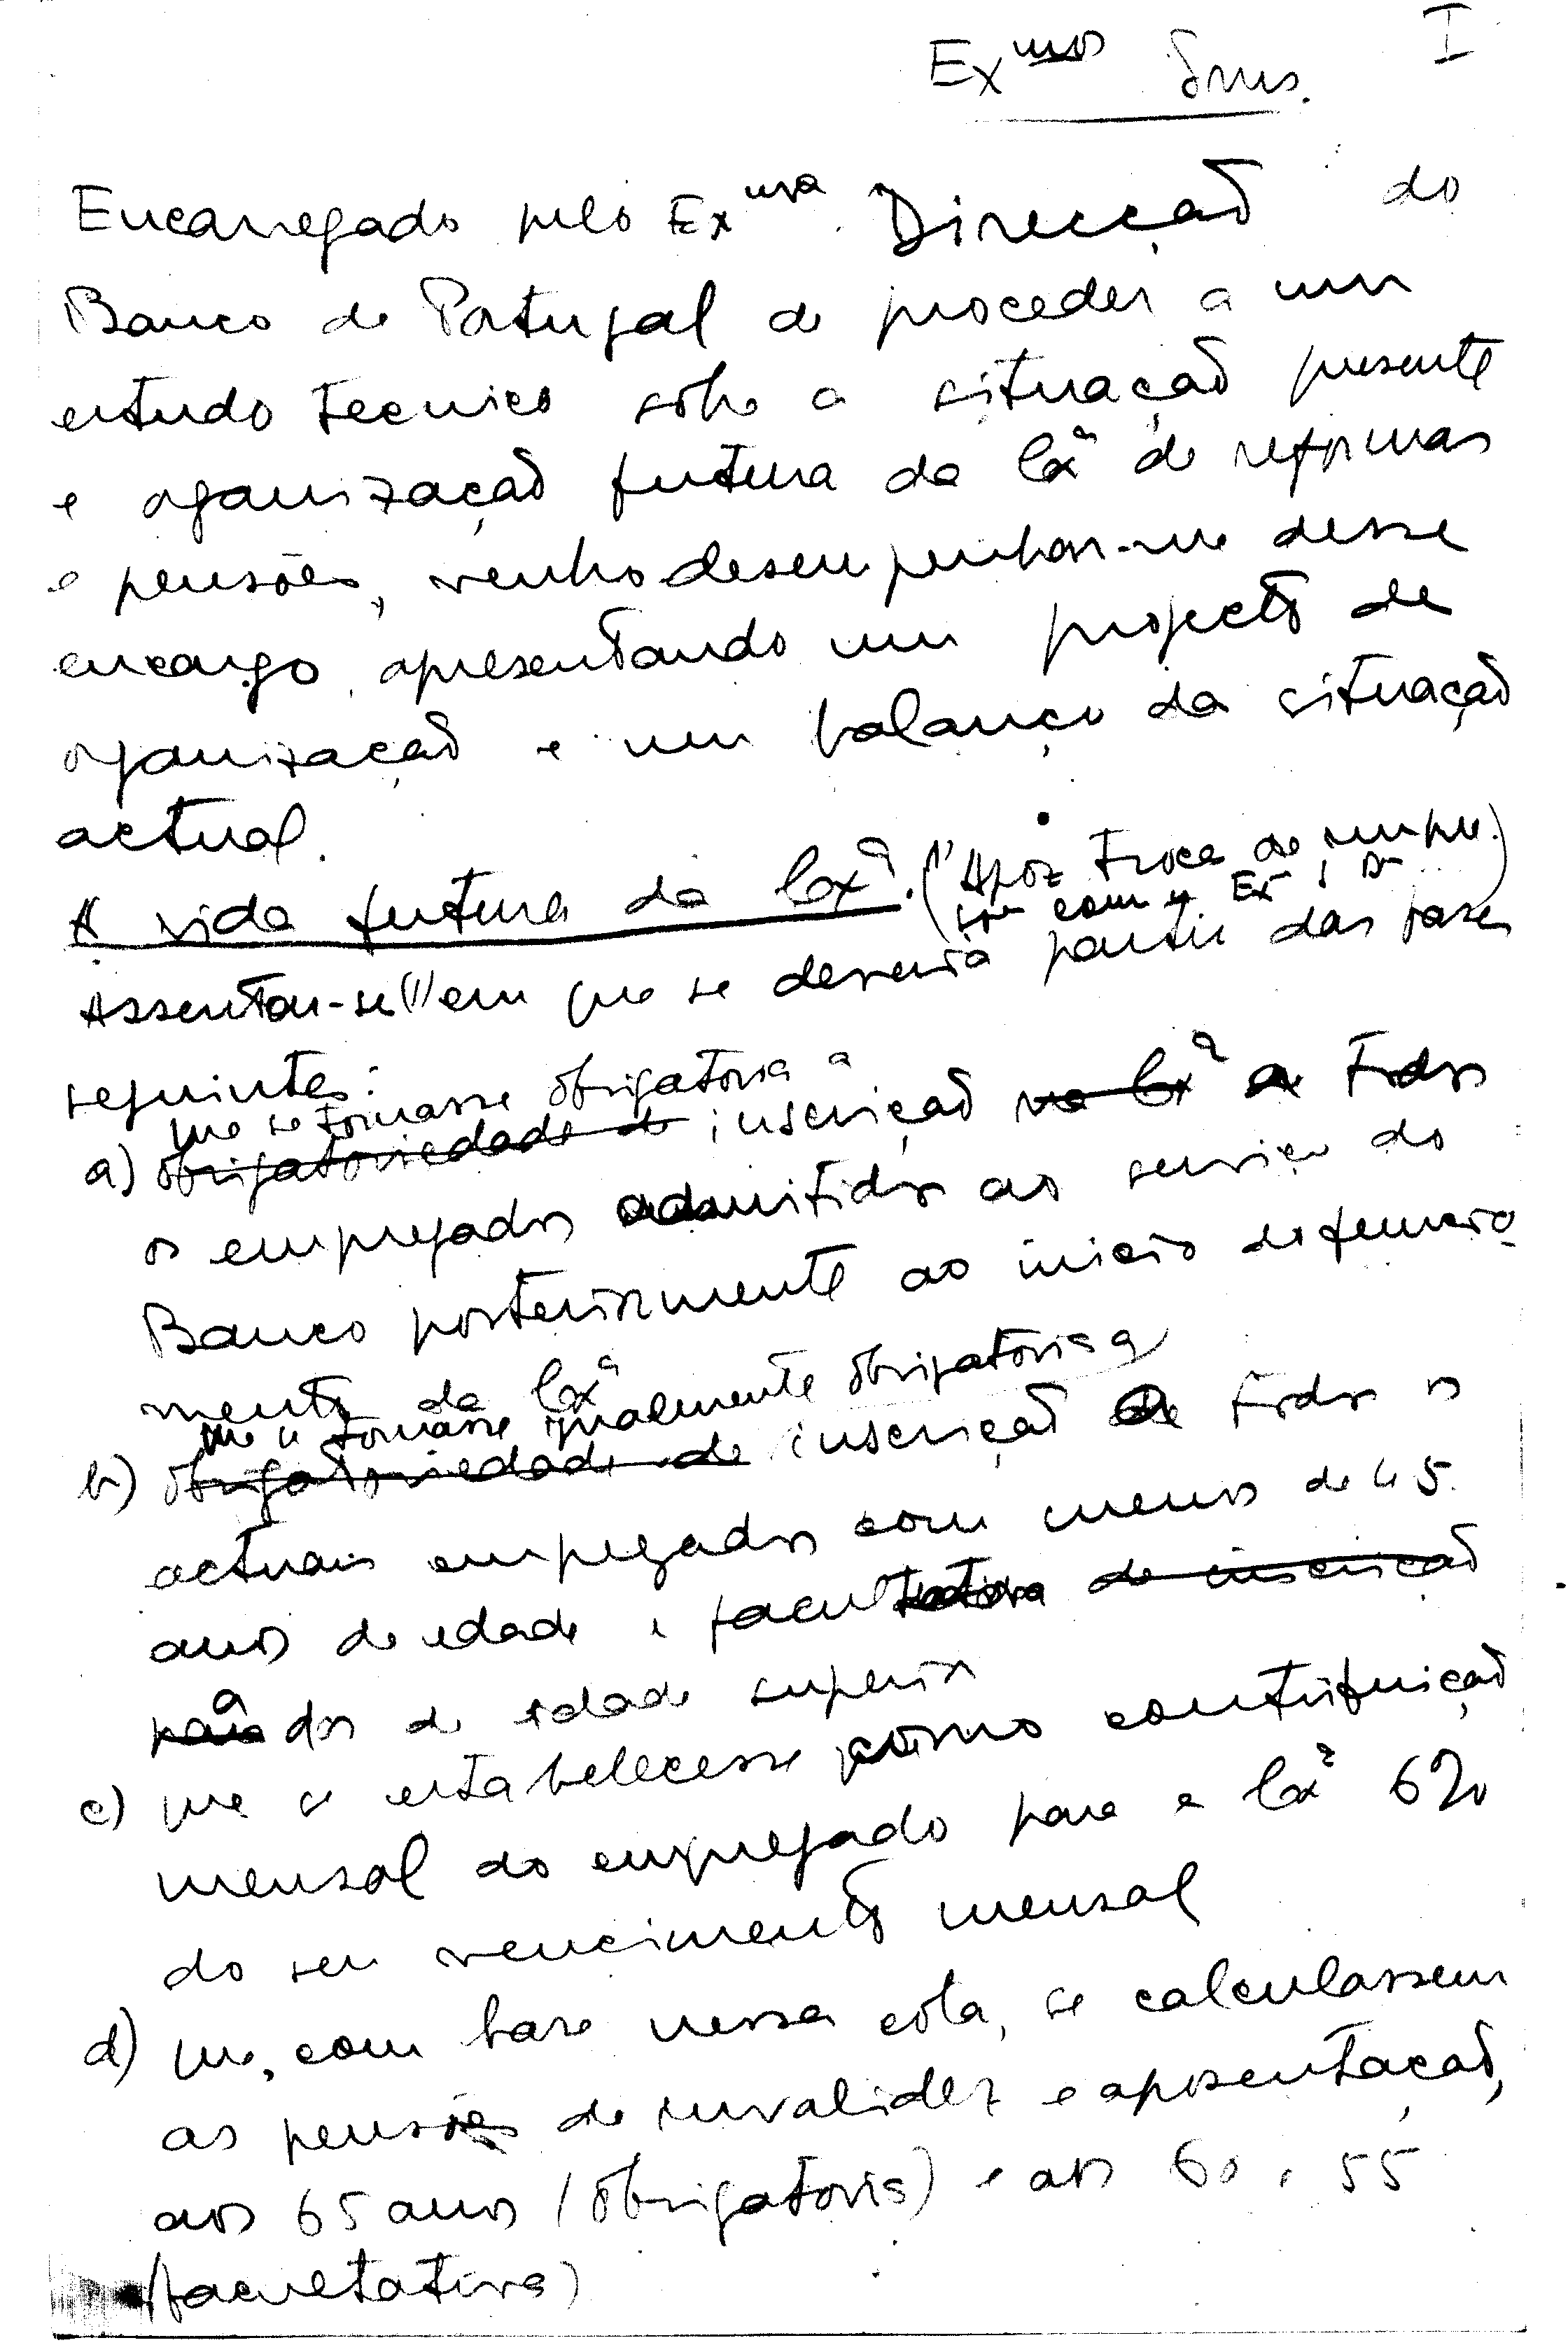 I
Ex^mos Snrs.
Encarregado pela Ex^ma Direcção do
Banco de Portugal de proceder a um
estudo tecnico sôbre a situação presente
e organização futura da Cx^a de reformas
e pensões, venho desempenhar-me desse
encargo, apresentando um projecto de
organização e um balanço da situação
actual.
A vida futura da Cx^a. (1) Apoz troca de
com o Ex^mo
Assentou-se (1) em que se deveria partir das bases
seguintes:
que se tornasse obrigatoria a
a) obrigatoriedade de inscrição na Cx^a de todos
os empregados admitidos ao serviço do
Banco posteriormente ao inicio de funciona
mento da Cx^a
que se tornasse igualmente obrigatoria a
b) obrigatoriedade de inscrição de todos os
actuais empregados com menos de 45
anos de edade e facultativa de inscrição
para a dos de edade superior
c) que se estabelecesse como contribuição
mensal do empregado para a Cx^a 6%
do seu vencimento mensal
d) que, com base nessa cóta, se calculassem
as pensões de invalidez e aposentação,
aos 65 anos (obrigatoria) e aos 60 e 55
(facultativa)